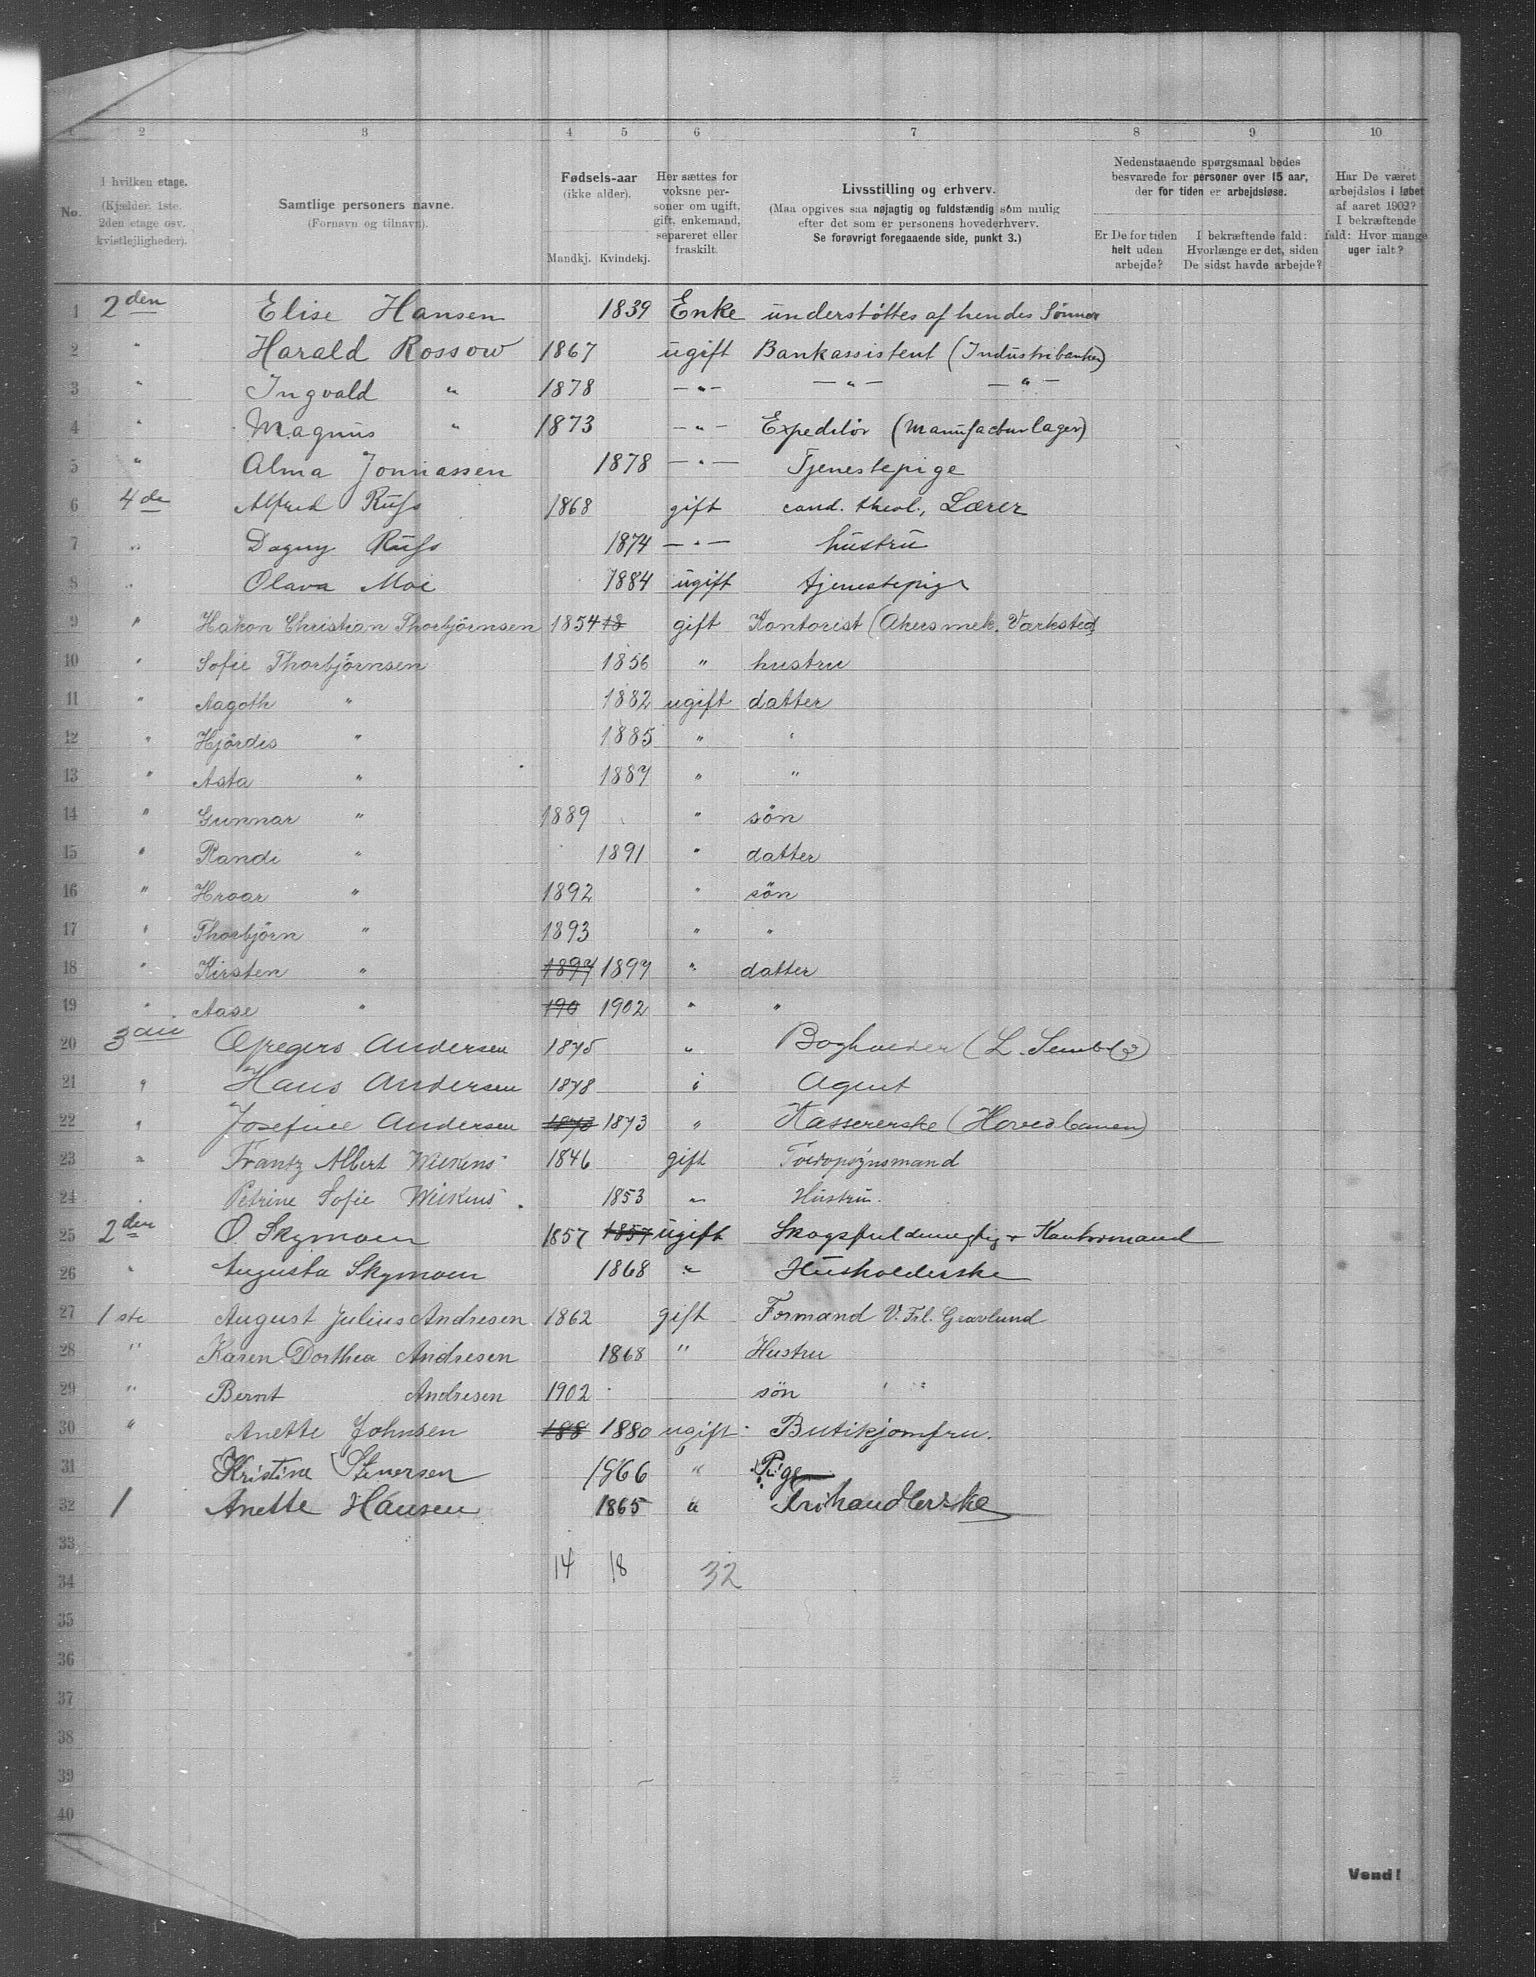 1 2 3 4 5 6 7 8 9 10
No.
I hvilken etage.
(Kjælder. 1ste.
2den etage osv.
kvistlejligheder).
Samtlige personers navne.
(Fornavn og tilnavn).
Fødsels-aar
(ikke alder).
Mandkj. Kvindekj.
Her sættes for
voksne per-
soner om ugift,
gift, enkemand,
separeret eller
fraskilt.
Livsstilling og erhverv.
(Maa opgives saa nøjagtig og fuldstændig som mulig
efter det som er personens hovederhverv.
Se forøvrigt foregaaende side, punkt 3.)
Nedenstaaende spørgsmaal bedes
besvarede for personer over 15 aar,
der for tiden er arbejdsløse.
Er De for tiden
helt uden
arbejde?
I bekræftende fald:
Hvorlænge er det, siden
De sidst havde arbejde?
Har De været
arbejdsløs i løbet
af aaret 1902?
I bekræftende
fald: Hvor mange
uger ialt?
1 2den Elise Hansen 1839 Enke understøttes af hendes Sønner
2 " Harald Rossow 1867 ugift Bankassistent (Industribanken)
3 " Ingvald " 1878 — " — — " — — " —
4 " Magnus " 1873 — " — Expeditør (Manufacturlager)
5 " Alma Jonnassen 1878 — " — Tjenestepige
6 4de Alfred Rufs 1868 gift cand. theol., Lærer
7 " Dagny Rufs 1874 — " — hustru
8 " Olava Moe 1884 ugift tjenestepige
9 " Hakon Christian Thorbjörnsen 1854 18 gift Kontorist (Akers mek. Værksted)
10 " Sofie Thorbjörnsen 1856 " hustru
11 " Aagoth " 1882 ugift datter
12 " Hjördis " 1885 " "
13 " Asta " 1887 " "
14 " Gunnar " 1889 " sön
15 " Randi " 1891 " datter
16 " Hroar " 1892 " sön
17 " Thorbjörn " 1893 " "
18 " Kirsten " 1897 1897 " datter
19 " Aase " 190 1902 " "
20 3die Gregers Andersen 1875 " Bogholder
21 " Hans Andersen 1878 " Agent
22 " Josefine Andersen 1873 1873 " Kassererske (Hovedbanen)
23 " Frantz Albert Wilkens 1846 gift Toldopsynsmand
24 " Petrine Sofie Wilkens. 1853 " Hustru.
25 2den O. Skymoen 1857 1857 ugift
26 " Augusta Skymoen 1868 " Husholderske
27 1ste August Julius Andresen 1862 gift Formand V. Frl. Gravlund
28 " Karen Dorthea Andresen 1868 " Hustru
29 " Bernt Andresen 1902 sön " "
30 " Anette Johnsen 188 1880 ugift Butikjomfru.
31 Kristine Stenersen 1866 " Pige
32 1 Anette Hansen 1865 "
33
14 18 32
34
35
36
37
38
39
40
Vend!